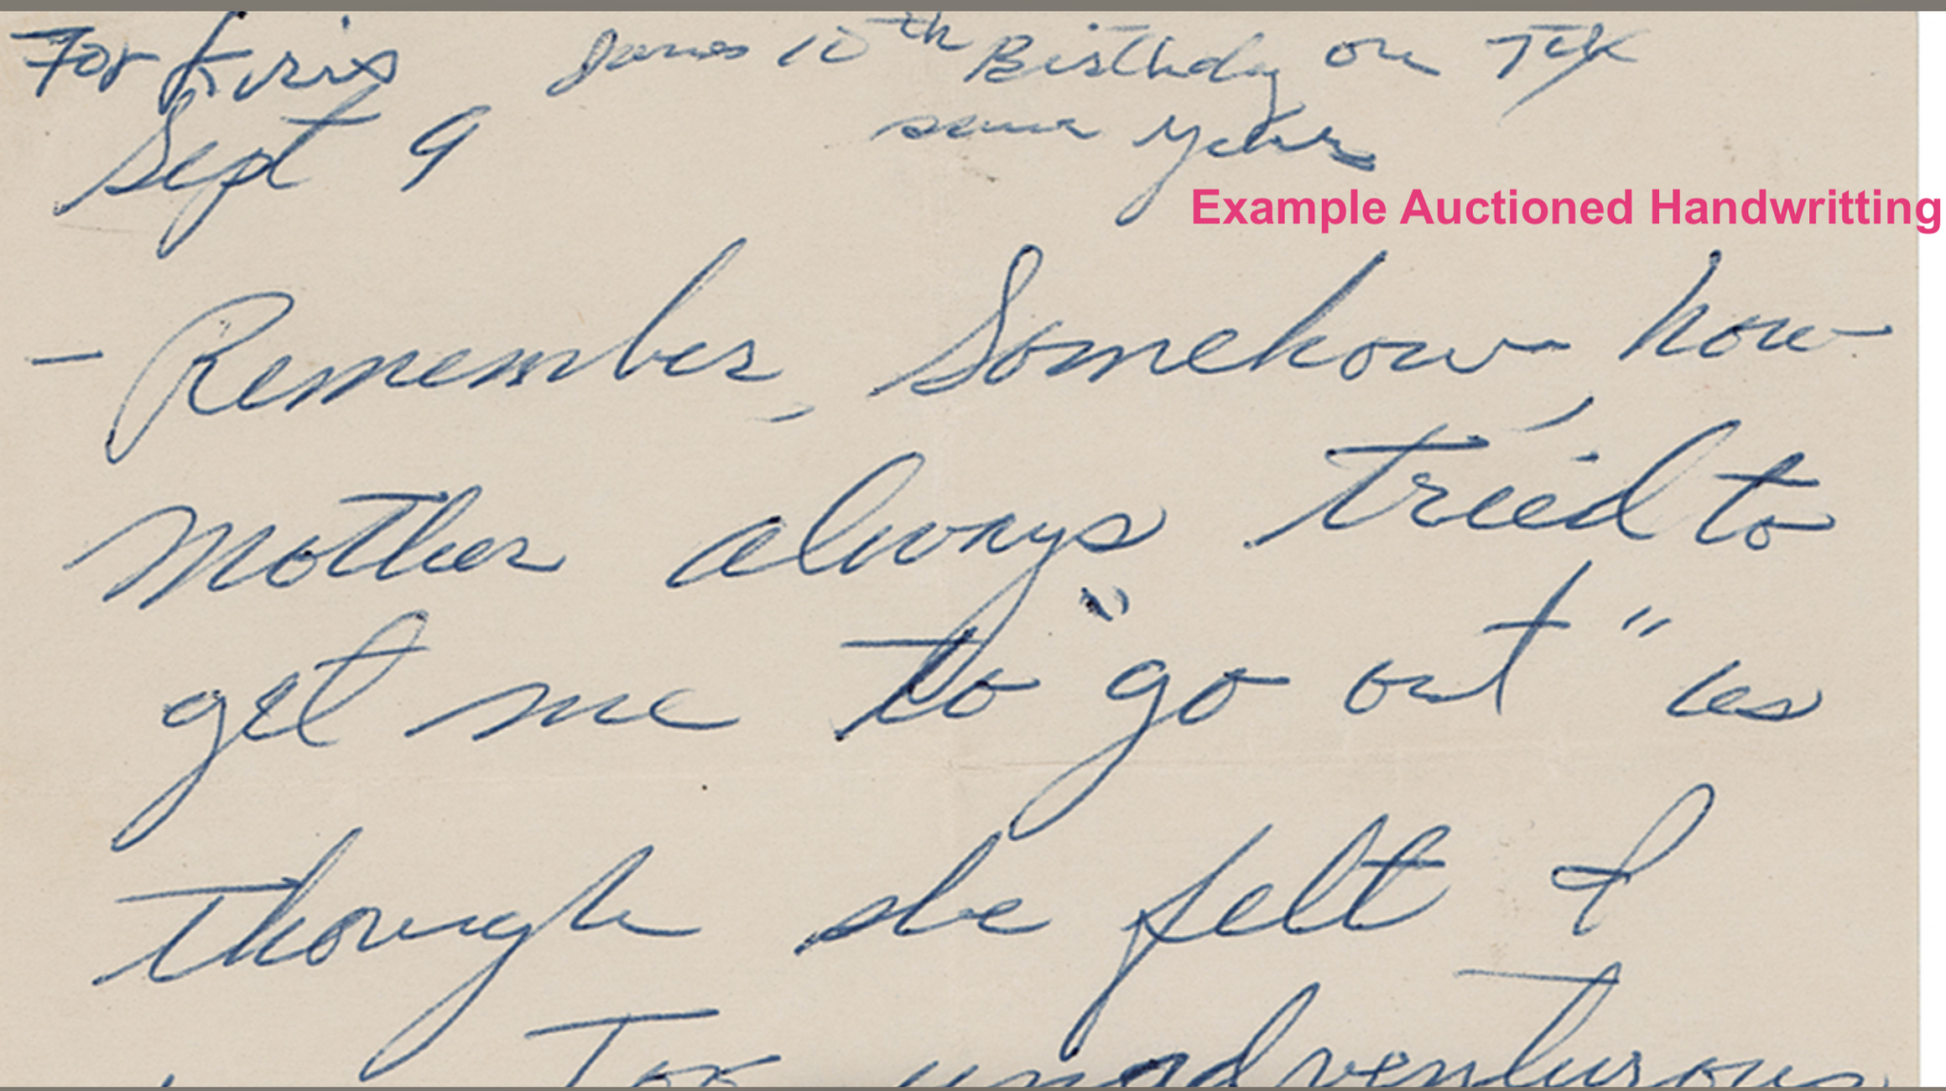 For Kris Janes 10th Birthday on Tex
Sept 9 same year
Example Auctioned Handwritting
- Remember, Somehow, how
mother always tried to
get me to "go out" as
though she felt I
Too unadventurous